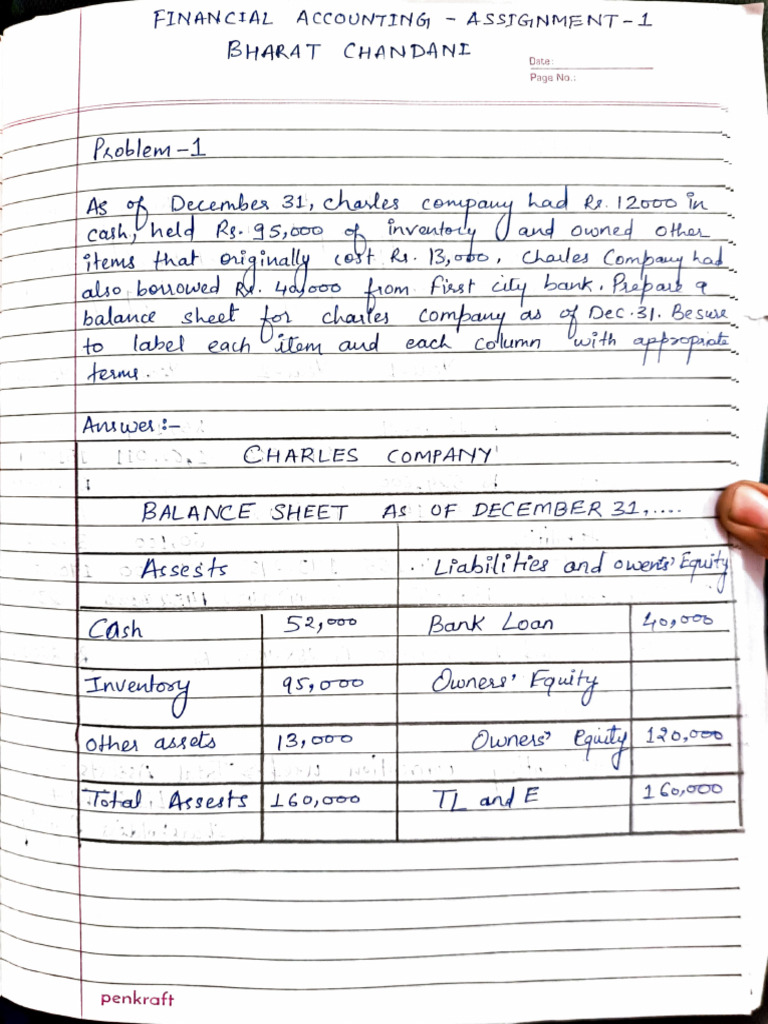 FINANCIAL ACCOUNTING - ASSIGNMENT-1
BHARAT CHANDANI
Date:
Page No.:
Problem-1
As of December 31, Charles company had Rs. 12000 in
cash, held Rs. 95,000 of inventory and owned other
items that originally cost Rs. 13,000. Charles Company had
also borrowed Rs. 40,000 from first city bank. Prepare a
balance sheet for charles company as of Dec.31. Be sure
to label each item and each column with appropriate
terms.
Answer:-
CHARLES COMPANY
BALANCE SHEET AS OF DECEMBER 31,....
Assests Liabilities and owners' Equity
Cash 52,000 Bank Loan 40,000
Inventory 95,000 Owners' Equity
other assets 13,000 Owners' Equity 120,000
Total Assests 160,000 TL and E 160,000
penkraft